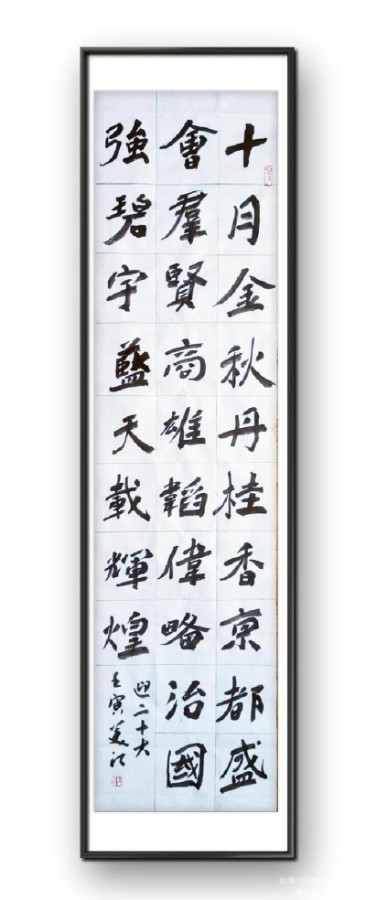 十月金秋丹桂香京都盛
會羣賢高雄韜偉略治國
強碧宇藍天載輝煌
迎二十大
壬寅